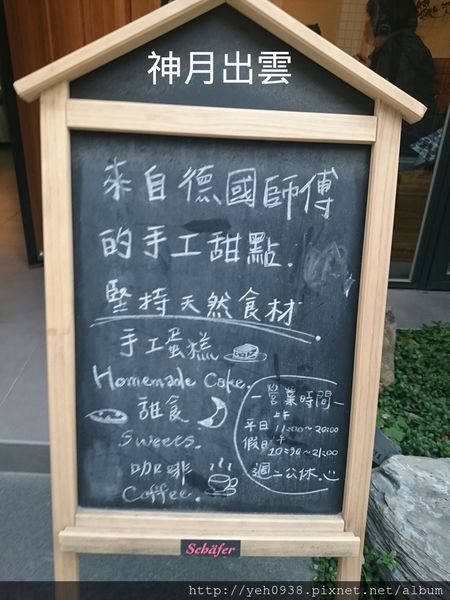 神月出雲
來自德國師傅
的手工甜點.
堅持天然食材.
手工蛋糕
Homemade Cake.
甜食
Sweets.
咖啡
Coffee.
營業時間
平日 11:00~20:00
假日
10:30~21:00
週二公休.
Schäfer
http://yeh0938.pixnet.net/album